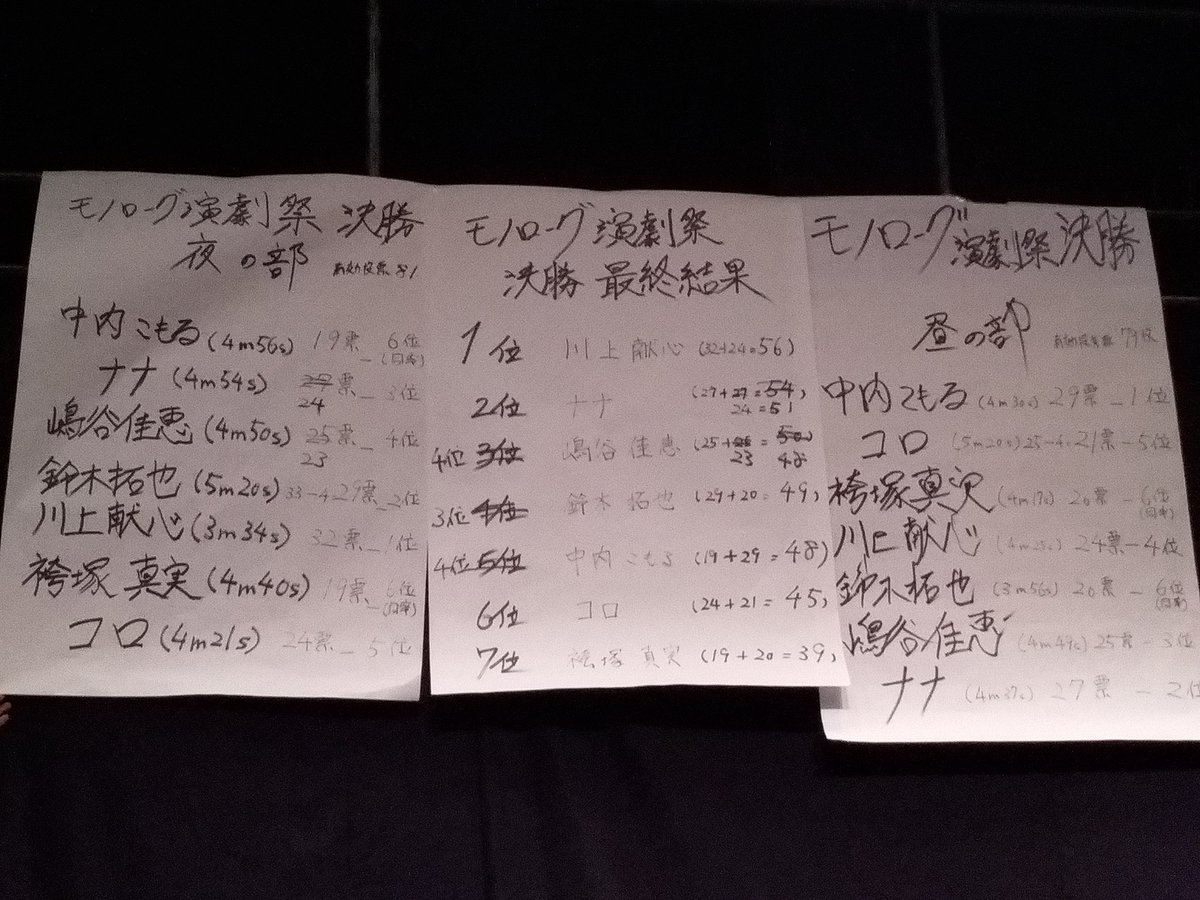 モノローグ演劇祭 決勝
夜の部 有効投票 81
中内こもる (4m56s) 19票_6位(同率)
ナナ (4m54s) 27票_3位
24
嶋谷佳恵 (4m50s) 25票_4位
23
鈴木拓也 (5m20s) 33-4 29票_2位
川上献心 (3m34s) 32票_1位
袴塚真実 (4m40s) 19票_6位(同率)
コロ (4m21s) 24票_5位
モノローグ演劇祭
決勝 最終結果
1位 川上献心 (32+24=56)
2位 ナナ (27+27=54)
24=51
4位 3位 嶋谷佳恵 (25+25=50)
23 48
3位 4位 鈴木拓也 (29+20=49)
4位 5位 中内こもる (19+29=48)
6位 コロ (24+21=45)
7位 袴塚真実 (19+20=39)
モノローグ演劇祭決勝
昼の部 79枚
中内こもる (4m30s) 29票-1位
コロ (5m20s) 25-4=21票-5位
袴塚真実 (4m17s) 20票-6位(同率)
川上献心 (4m25s) 24票-4位
鈴木拓也 (3m56s) 20票-6位(同率)
嶋谷佳恵 (4m49s) 25票-3位
ナナ (4m37s) 27票-2位